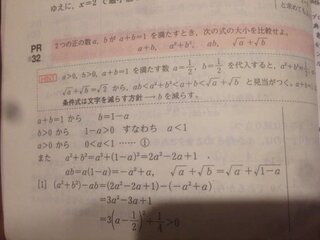 ゆえに, x=2 で最小
PR
32
2つの正の数 a, b が a+b=1 を満たすとき, 次の式の大小を比較せよ。
a+b, a²+b², ab, √a+√b
HINT a>0, b>0, a+b=1 を満たす数 a=1/2, b=1/2 を代入すると, a²+b²=
√a+√b=√2 から, ab<a²+b²<a+b<√a+√b と見当がつく。
条件式は文字を減らす方針 → b を減らす。
a+b=1 から b=1−a
b>0 から 1−a>0 すなわち a<1
a>0 から 0<a<1 …… ①
また a²+b²=a²+(1−a)²=2a²−2a+1
ab=a(1−a)=−a²+a, √a+√b=√a+√1−a
[1] (a²+b²)−ab=(2a²−2a+1)−(−a²+a)
=3a²−3a+1
=3(a−1/2)²+1/4>0